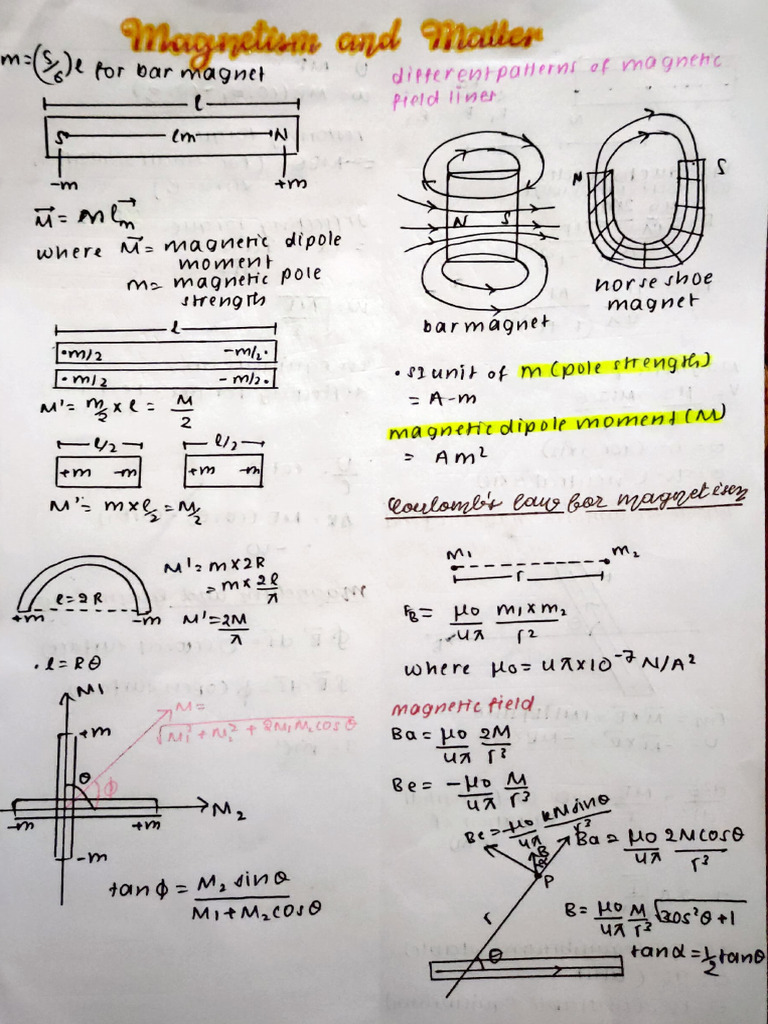 Magnetism and Matter
m = (5/6) l for bar magnet
l
S lm N
-m +m
M⃗ = m l⃗m
where M⃗ = magnetic dipole
moment
m = magnetic pole
strength
l
• m/2 -m/2 •
• m/2 -m/2 •
M' = m/2 x l = M/2
l/2 l/2
+m -m +m -m
M' = m x l/2 = M/2
l = 2R
+m -m
M' = m x 2R
= m x 2l/π
M' = 2M/π
• l = Rθ
M1
+m
M =
√M1² + M2² + 2M1M2 cosθ
θ φ
-m +m M2
-m
tanφ = M2 sinθ / M1 + M2 cosθ
different patterns of magnetic
field lines
N S
bar magnet
N S
horse shoe
magnet
• SI unit of m (pole strength)
= A-m
magnetic dipole moment (M)
= Am²
Coulomb's law for magnetism
M1 m2
r
FB = μ0/4π m1 x m2/r²
where μ0 = 4π x 10⁻⁷ N/A²
magnetic field
Ba = μ0/4π 2M/r³
Be = -μ0/4π M/r³
Be = μ0/4π Msinθ/r³
B
Ba = μ0/4π 2Mcosθ/r³
P
r
θ
B = μ0/4π M/r³ √3cos²θ + 1
tanα = 1/2 tanθ